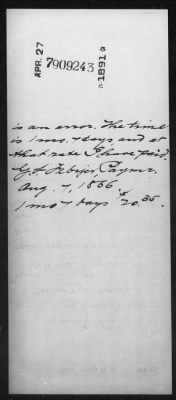 APR. 27
7909243
1891
is an error. The time
is 1 mo. 7 days and at
that rate I have paid.
Paymr.
Aug. 7, 1866.
1 mo 7 days $20.35